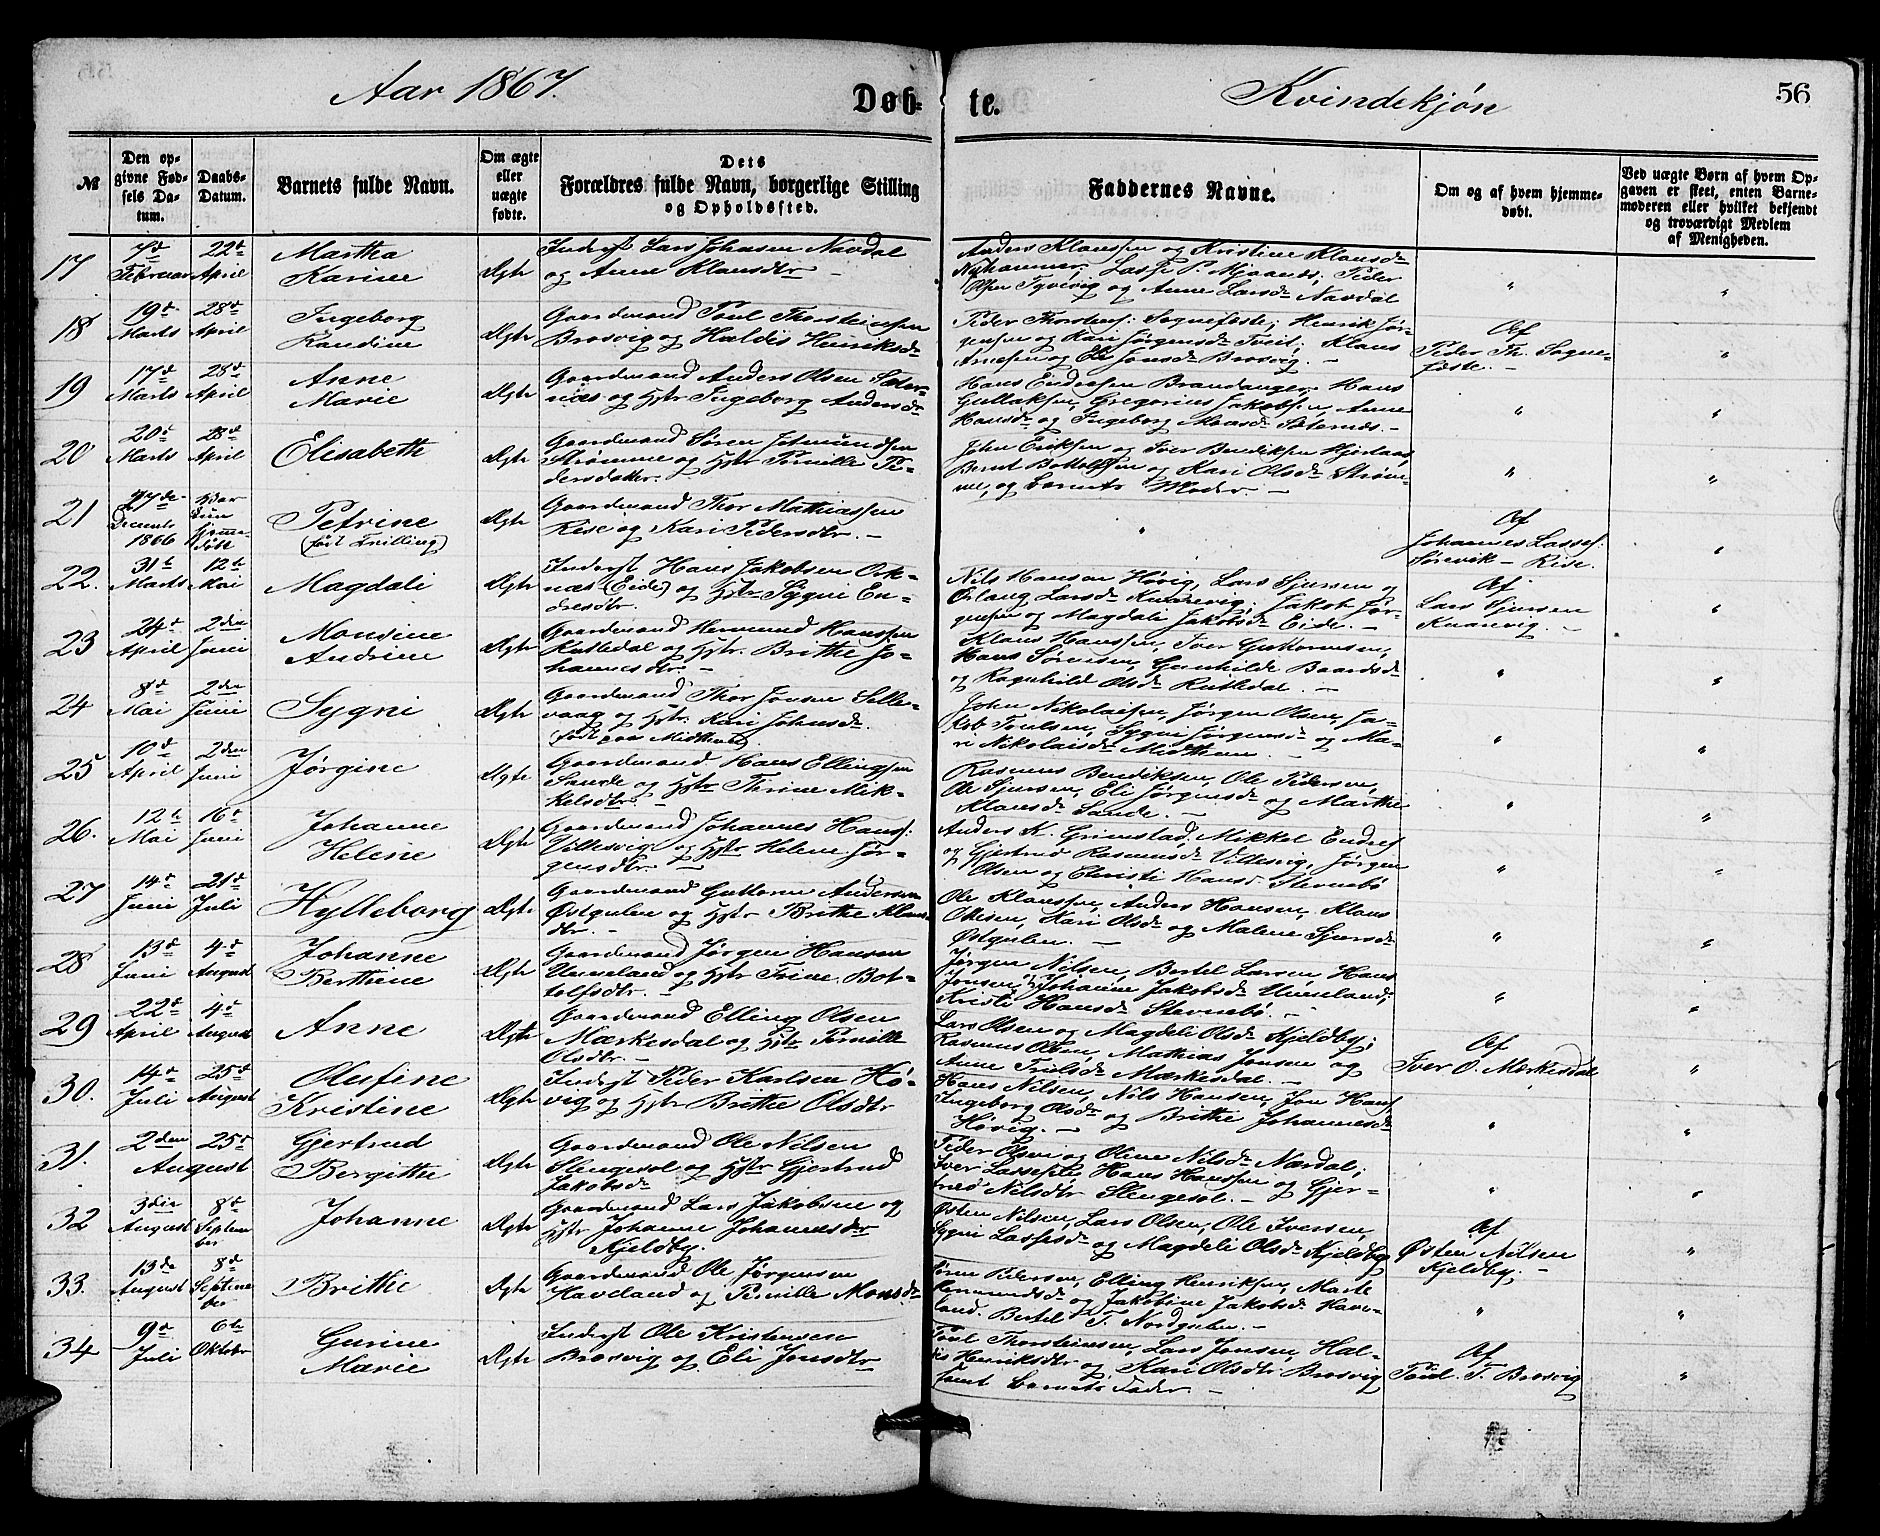 Aar 1867.
Døb-
te.
Kvindekjøn
56
№
Den op-
givne Fød-
sels Da-
tum.
Daabs-
Datum.
Barnets fulde Navn.
Om ægte
eller
uægte
fødte.
Dets
Forældres fulde Navn, borgerlige Stilling
og Opholdssted.
Faddernes Navne.
Om og af hvem hjemme-
døbt.
Ved uægte Børn af hvem Op-
gaven er skeet, enten Barne-
moderen eller hvilket bekjendt
og troværdigt Medlem
af Menigheden.
17
7d
Februar
22d
April
Martha
Karine
Ægte
Inderst Lars Johnsen Navdal
og Anne Klausdtr –
Anders Klaussen og Kristine Klausdr
Nyhammer, Lasse P. Mjaanes, Peder
Olsen Tyvivig og Anne Larsdr Navdal
"
"
18
19d
Marts
28d
April
Ingeborg
Randine
Ægte
Gaardmand Poul Thorsteinsen
Brosvig og Haldis Henriksdr
Peder Thorstens: Sognefeste; Henrik Jør-
gensen og Kari Jørgensdr Tveit; Klaus
Arnesen og Eli Jonsdr Brosvig. –
Af
Peder Th. Sogne-
feste. –
"
19
17d
Marts
28d
April
Anne
Marie
Ægte
Gaardmand Anders Olsen Sæter-
næs og Hstr Ingeborg Andersdr
Hans Endresen Brandanger, Hans
Gullaksen, Gregorius Jakobsen, Anne
Hansdr og Ingeborg Monsdr Sæternæs. –
"
"
20
20d
Marts
28d
April
Elisabeth
Ægte
Gaardmand Søren Jetmundsen
Strømme og Hstr Pernille Pe-
dersdatter.
John Eriksen og Iver Bendiksen Hjerlaas,
Bernt Bottolfsen og Kari Olsdr Strøm-
me, og Barnets Moder. –
"
"
21
27de
Decembr
1866
Var
kun
hjemme-
døbt
Petrine
(født Tvilling)
Ægte
Gaardmand Thor Mathiassen
Rise og Kari Pedersdtr. –
"
Af
Johannes Lasses:
Sørevik – Rise.
"
22.
31t
Marts
12te
Mai
Magdali
Ægte
Inderst Hans Jakobsen Ork-
næs (Eide) og Hstr Sygni En-
dresdtr.
Nils Hansen Høvig, Lars Sjursen og
Erlaug Larsdr Kvarevig; Jakob Jør-
gensen og Magdali Jakobsdr Eide. –
Af
Lars Sjursen
Kvarvig. –
"
23
24d
April
2den
Juni
Monsine
Andrine
Ægte
Gaardmand Hermund Hanssen
Rutledal og Hstr. Brithe Jo-
hannesdtr. –
Klaus Hanssen, Iver Guttormsen,
Hans Sørensen, Gunhilde Baardsdr
og Ragnhild Olsdr Rutledal. –
"
"
24
8d
Mai
2den
Juni
Sygni
Ægte
Gaardmand Thor Jonsen Selle-
vaag og Hstr. Kari Johnsdr.
(født paa Midthun)
John Nikolaisen, Jørgen Olsen, Ja-
kob Poulsen, Sygni Jørgensdr og Ma-
ri Nikolaisdr Midthun –
"
"
25
10d
April
2den
Juni
Jørgine
Ægte
Gaardmand Hans Ellingsen
Sande og Hstr Thrine Mik-
kelsdtr. –
Rasmus Bendiksen, Ole Pedersen,
Ole Sjursen, Eli Jørgensdr og Marthe
Klausdr Sande. –
"
"
26.
12te
Mai
16d
Juni
Johanne
Helene
Ægte
Gaardmand Johannes Hanss:
Villesvig og Hstr Helene Jør-
gensdtr. –
Anders K. Grimstad, Mikkel Endres
og Gjertrud Rasmusdr Villesvig, Jørgen
Olsen og Christi Hansdr Sternebø
"
"
27
14d
Juni
21d
Juli
Hylleborg
Ægte
Gaardmand Guttorm Andersen
Østgulen og Hstr Brithe Klaus-
dtr. –
Ole Klaussen, Anders Hansen, Klaus
Ottesen, Kari Olsdr og Malene Sjursdr
Østgulen. –
"
"
28
13d
Juni
4d
August
Johanne
Berthine
Ægte
Gaardmand Jørgen Hansen
Unneland og Hstr Trine Bot-
tolfsdtr. –
Jørgen Nilsen, Bertel Larsen, Hans
Jonsen, Johanne Jakobsdr Unneland;
Kristi Hansdr Sternebø. –
"
"
29
22d
April
4d
August
Anne
Ægte
Gaardmand Elling Olsen
Mærkesdal og Hstr Pernille
Olsdtr. –
Lars Olsen og Magdeli Olsdr Kjeldby;
Rasmus Olsen, Mathias Jonsen og
Anne Trulsdr Mærkesdal. –
Af
Iver O. Mærkesdal
"
30.
14d
Juli
25d
August
Olufine
Kristine
Ægte
Inderst Peder Karlsen Hø-
vig og Hstr Brithe Olsdtr
Hans Nilsen, Nils Hansen, Jon Hans
Ingeborg Olsdr og Brithe Johannesdr
Høvig. –
"
"
31.
2den
August
25d
Gjertrud
Bergitthe
Ægte
Gaardmand Ole Nilsen
Slengesol og Hstr Gjertrud
Jakobsdr
Peder Olsen og Oline Nilsdr Nærdal;
Iver Lassesen, Hans Hanssen og Gjer-
trud Nilsdtr Slengesol. –
"
"
32
3die
August
8d
Septem
ber
Johanne
Ægte
Gaardmand Lars Jakobsen og
Hstr Johanne Johannesdr
Kjeldby.
Østen Nilsen, Lars Olsen, Ole Iversen,
Sygni Lassesdr og Magdeli Olsdr Kjeldby
Af
Østen Nilsen
Kjeldby. –
"
33.
13de
August
8d
Septem
ber
Brithe
Ægte
Gaardmand Ole Jørgensen
Haveland og Pernille Monsdr
Søren Pedersen, Elling Henriksen, Marte
Hermundsdr og Jakobine Jakobsdr Have-
land. Bertel T. Nordgulen. –
"
"
34
9d
Juli
6te
Oktobr
Gurine
Marie
Ægte
Inderst Ole Kristensen
Brosvig og Eli Jonsdtr
Poul Thorsteinsen, Lars Jonsen, Hal-
dis Henriksdtr og Kari Olsdtr Brosvig
samt Barnets Fader –
Af
Poul. T. Brosvig
"